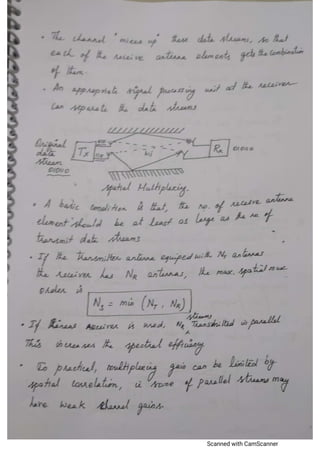 • The channel "mixes up" these data streams, so that
each of the receive antenna elements gets the combination
of them.
• An appropriate signal processing unit at the receiver
can separate the data streams
Original
data
stream
01010
Tx
Rx
01010
Spatial Multiplexing.
• A basic condition is that, the no. of receive antenna
element should be at least as large as the no. of
transmit data streams
• If the transmitter antenna equiped with NT antennas
the receiver has NR antennas, the max. spatial mux
order is
Ns = min (NT, NR)
• If linear receiver is used, Ns streams Transmitted in parallel
This increases the spectral efficiency
• In practical, multiplexing gain can be limited by
spatial correlation, ie some of parallel streams may
have weak channel gains.
Scanned with CamScanner